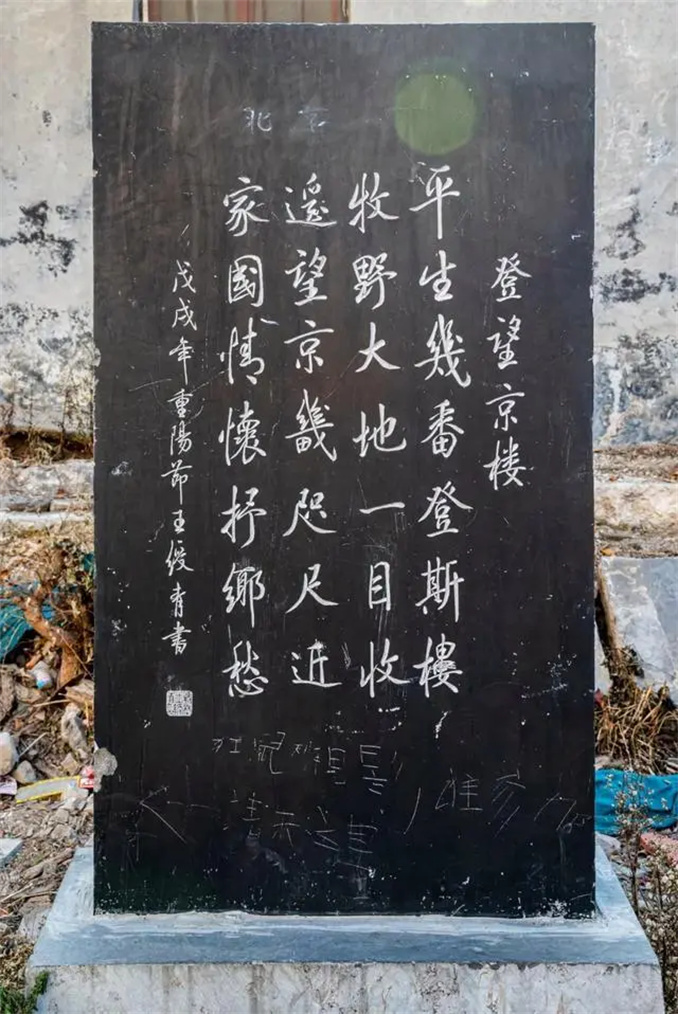 登望京楼
平生幾番登斯樓
牧野大地一目收
遥望京畿咫尺近
家國情懷抒鄉愁
戊戌年重陽節王綬青書
北京